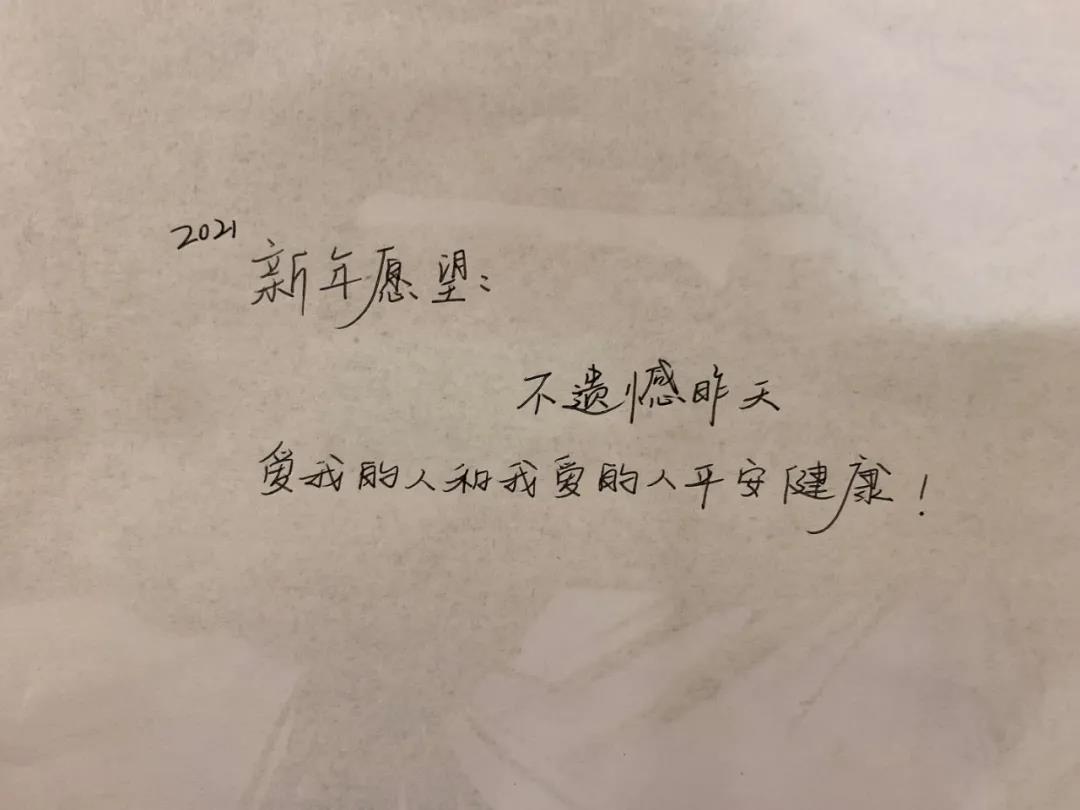 2021
新年愿望：
不遗憾昨天
爱我的人和我爱的人平安健康！